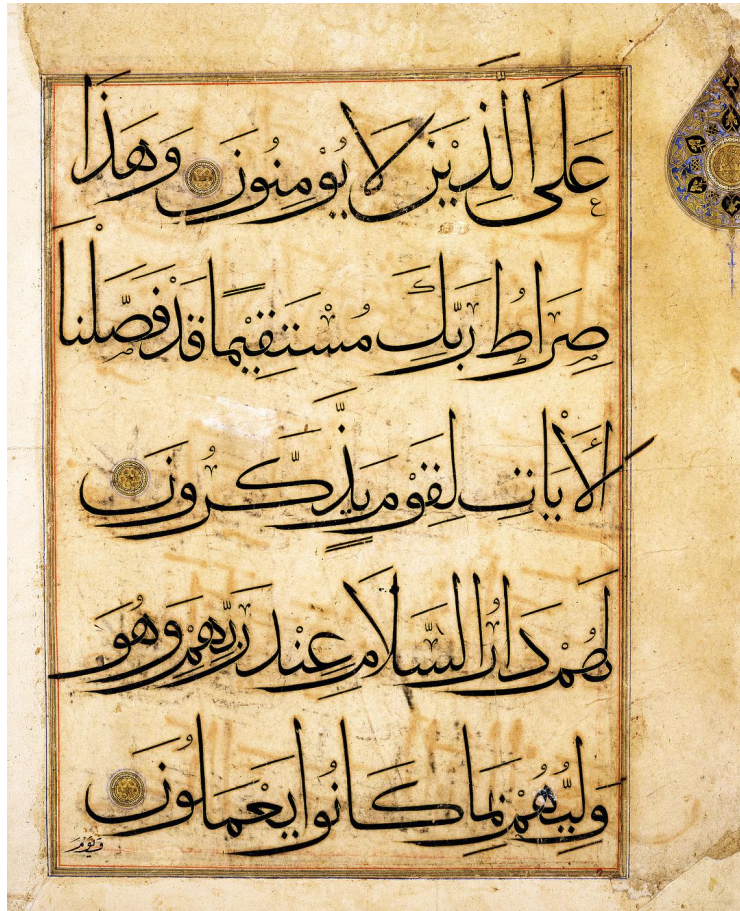 عَلَى الَّذِيْنَ لَا يُوْمِنُوْنَ وَهَذَا
صِرَاطُ رَبِّكَ مُسْتَقِيْمًا قَدْ فَصَّلْنَا
الْأَيَاتِ لِقَوْمٍ يَذَّكَّرُوْنَ
لَهُمْ دَارُ السَّلَامِ عِنْدَ رَبِّهِمْ وَهُوَ
وَلِيُّهُمْ بِمَا كَانُوا يَعْمَلُوْنَ
وَيَوْمَ